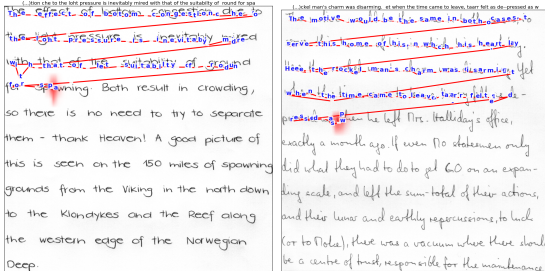 (...)tion che to the loht pressure is inevitably mired with that of the suitability of round for spa
The effect of bottom congestion
the pressure is inevitably
with that of the suitability of ground
for spawning. Both result in crowding,
so there is no need to try to separate
them - thank Heaven! A good picture of
this is seen on the 150 miles of spawning
grounds from the Viking in the north down
to the Klondykes and the Reef along
the western edge of the Norwegian
Deep.
(...)cked man's charm was disarming, et when the time came to leave, taarr felt as de-pressed as w
The motive would be the same in both cases: to
serve this home of his in which his heart lay.
Here the man's charm was disarming. Yet
when the time came to leave, felt as de-
pressed as when he left Mrs. Halliday's office,
exactly a month ago. If even statesmen only
did what they had to do to get on an expan-
ding scale, and left the sum-total of their actions,
and their lunar and earthly repercussions, to luck
(or to ), there was a vacuum where there should
be a centre of trust, responsible for the maintenance